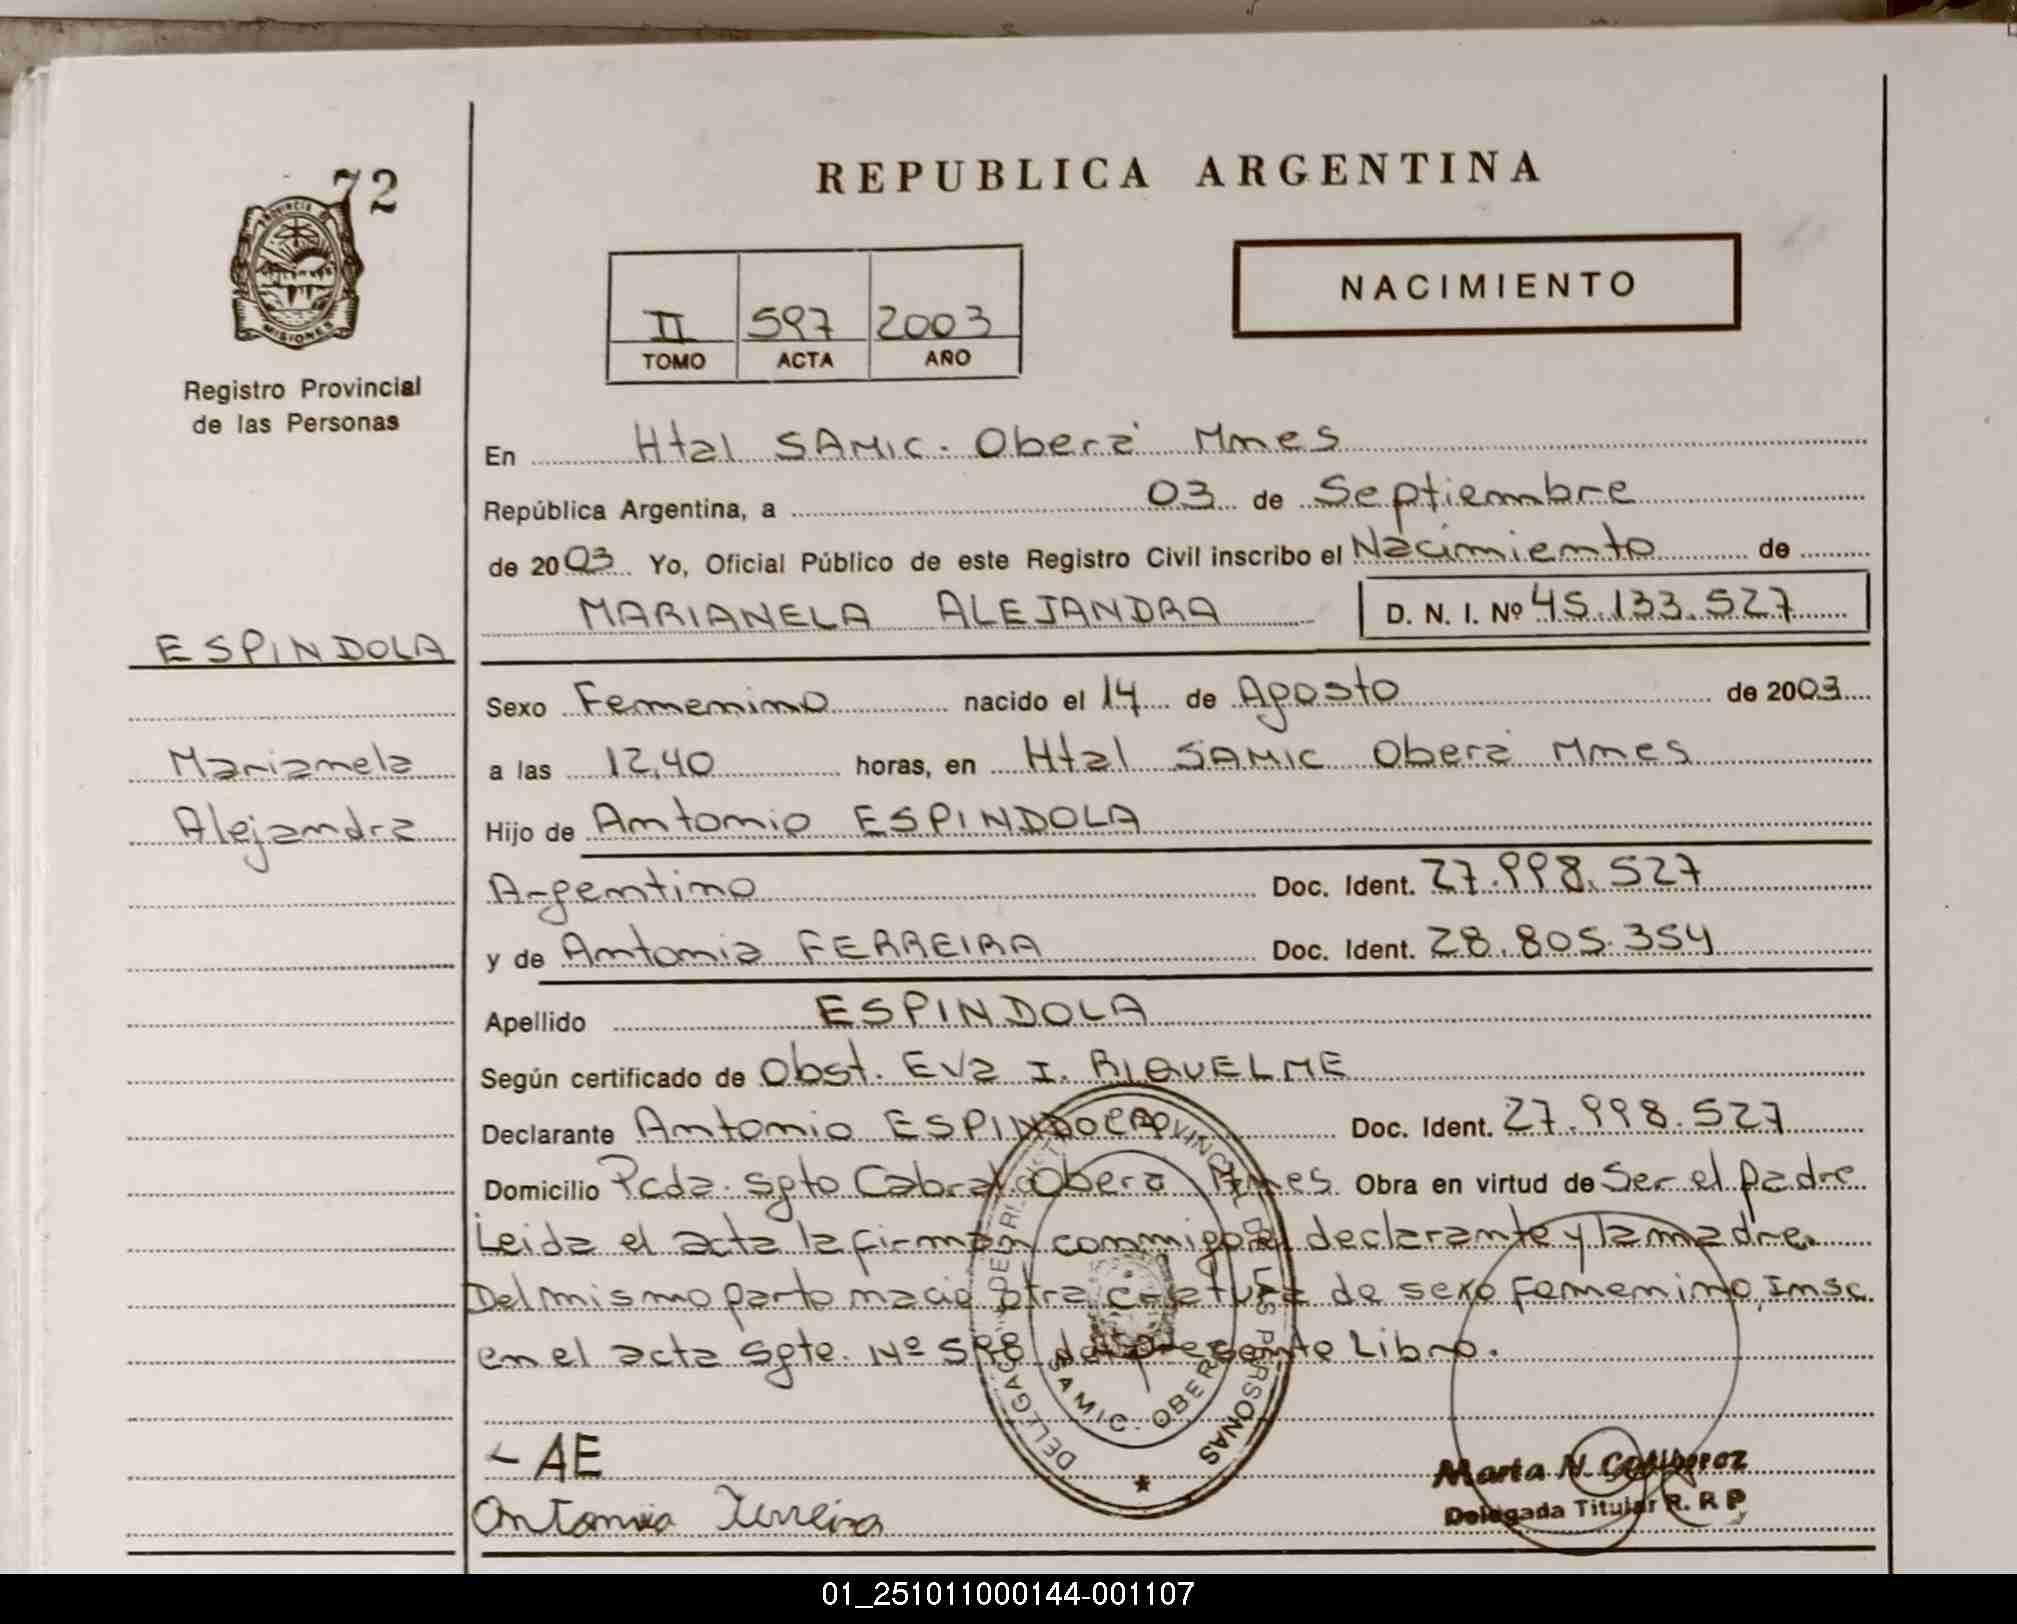 72
PROVINCIA DE
MISIONES
Registro Provincial
de las Personas
REPUBLICA ARGENTINA
NACIMIENTO
II 597 2003
TOMO ACTA AÑO
En Htal SAMIC. Oberá Mnes
República Argentina, a 03 de Septiembre
de 2003 Yo, Oficial Público de este Registro Civil inscribo el Nacimiento de
MARIANELA ALEJANDRA D. N. I. Nº 45.133.527
ESPINDOLA
Marianela
Alejandra
Sexo Femenino nacido el 14 de Agosto de 2003
a las 12,40 horas, en Htal SAMIC Oberá Mnes
Hijo de Antonio ESPINDOLA
Argentino Doc. Ident. 27.998.527
y de Antonia FERREIRA Doc. Ident. 28.805.354
Apellido ESPINDOLA
Según certificado de Obst. Eva I. RIQUELME
Declarante Antonio ESPINDOLA Doc. Ident. 27.998.527
Domicilio Pcda. Sgto Cabral Oberá Mnes Obra en virtud de Ser el padre
Leida el acta la firman conmigo el declarante y la madre.
Del mismo parto nacio otra criatura de sexo femenino, Insc.
en el acta sgte. Nº 598 del presente Libro.
SAMIC. OBERA
- AE
Antonia Ferreira
Marta N.
Delegada Titular R. R P
01_251011000144-001107